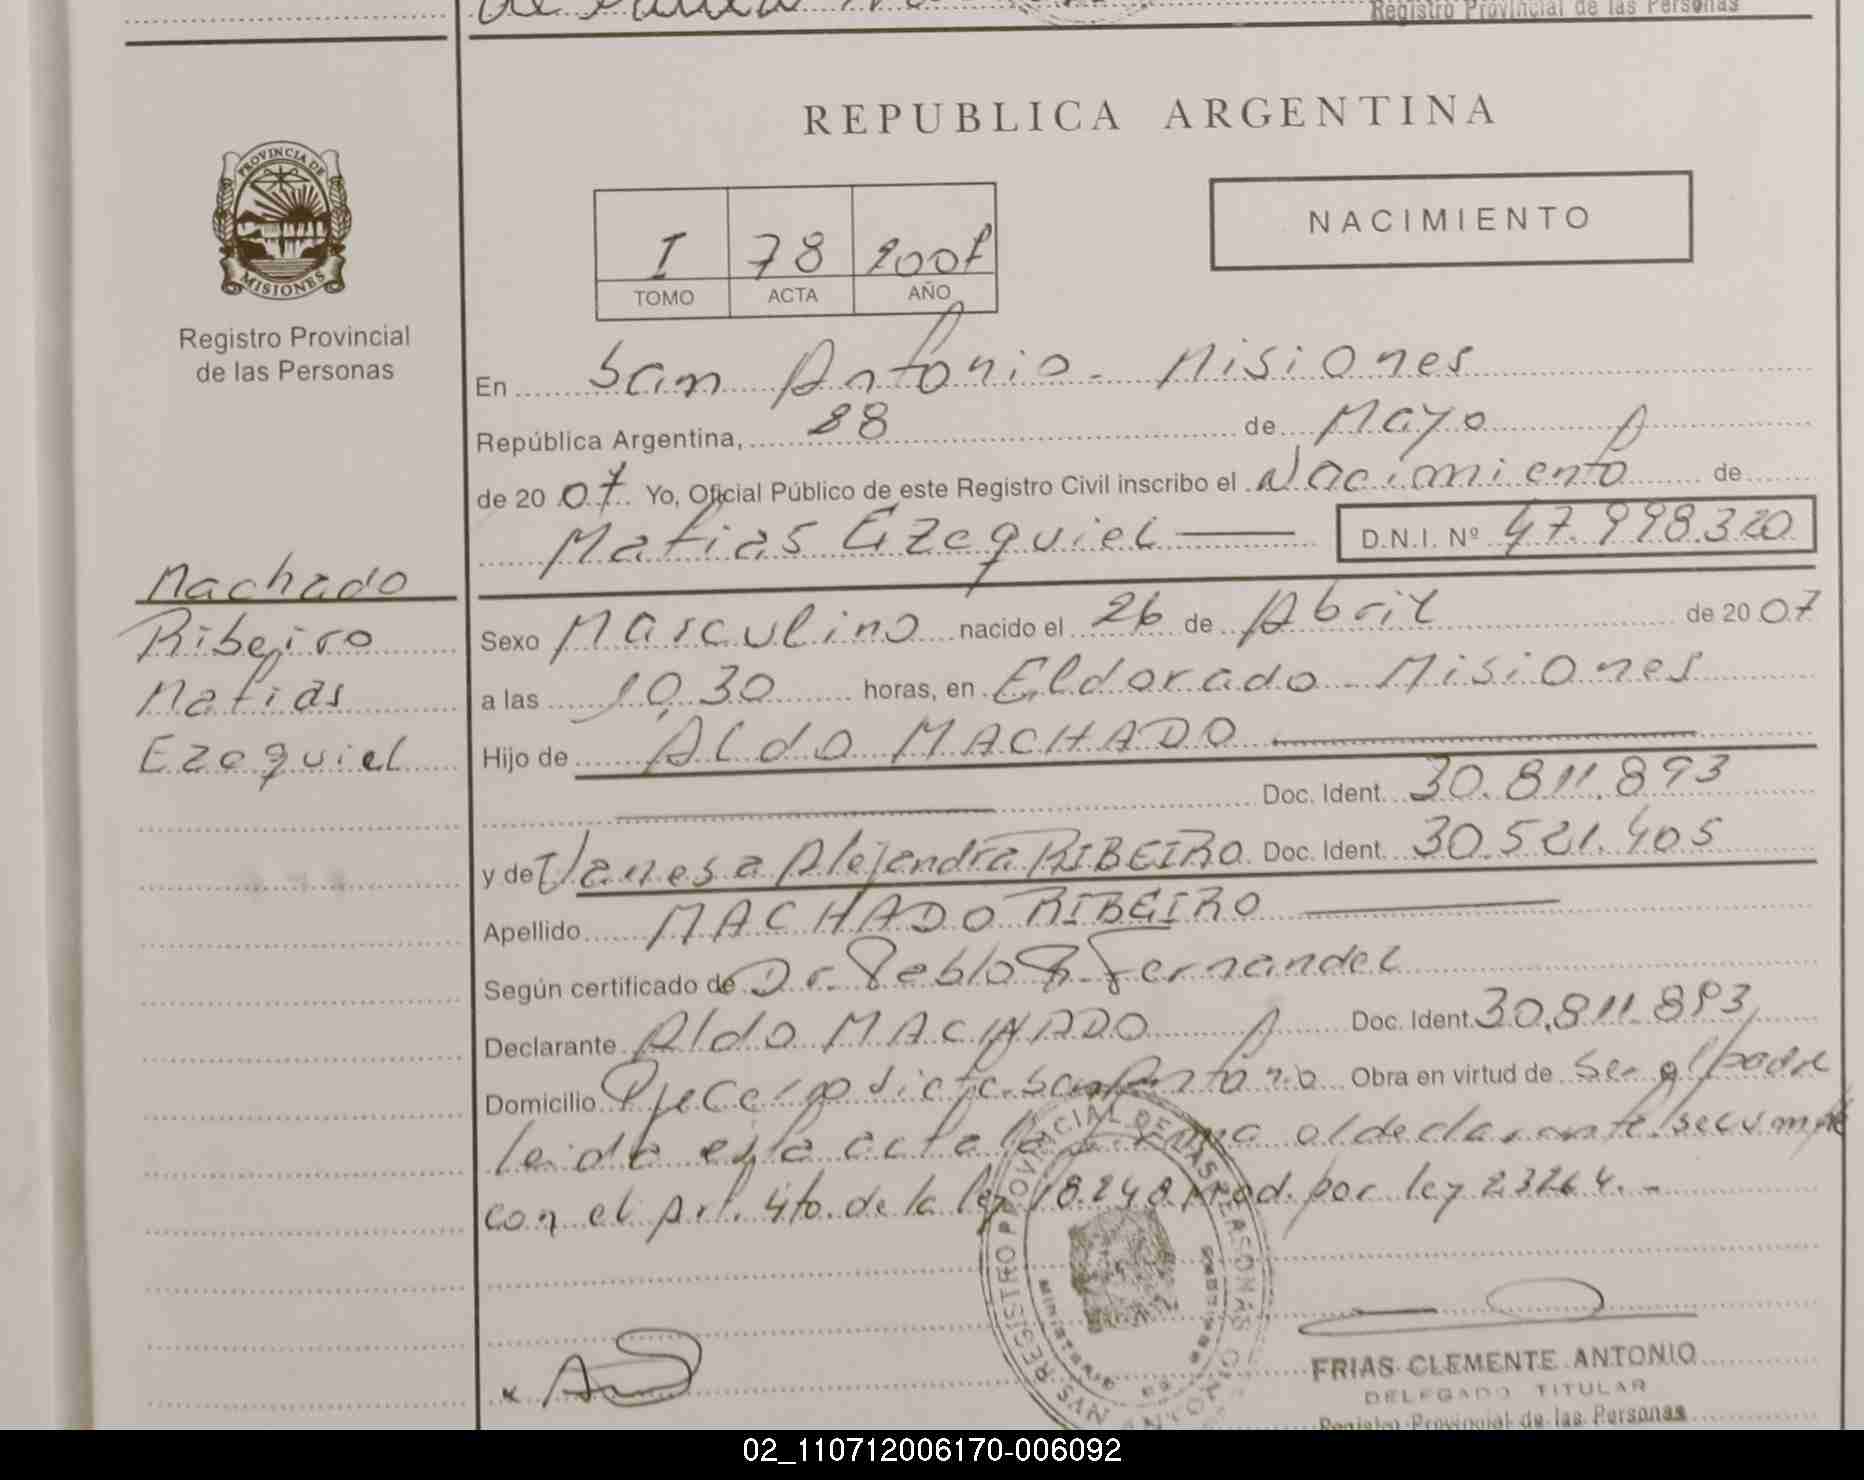 Registro Provincial de las Personas
PROVINCIA DE
MISIONES
Registro Provincial
de las Personas
REPUBLICA ARGENTINA
NACIMIENTO
I 78 2007
TOMO ACTA AÑO
En San Antonio - Misiones
República Argentina, 28 de Mayo
de 2007 Yo, Oficial Público de este Registro Civil inscribo el Nacimiento de
Matias Ezequiel D.N.I. Nº 47.998.320
Machado
Ribeiro
Matias
Ezequiel
Sexo Masculino nacido el 26 de Abril de 2007
a las 10,30 horas, en Eldorado - Misiones
Hijo de Aldo MACHADO
Doc. Ident. 30.811.893
y de Vanesa Alejandra RIBEIRO Doc. Ident. 30.521.405
Apellido MACHADO RIBEIRO
Según certificado de Dr. Pablo Fernandez
Declarante Aldo MACHADO Doc. Ident. 30.811.893
Domicilio San Antonio Obra en virtud de Ser el padre
leida esta acta la firma el declarante, se cumple
con el Art. 4to. de la ley 18.248 Mod. por ley 23264.-
REGISTRO PROVINCIAL DE LAS PERSONAS
SAN ANTONIO
FRIAS CLEMENTE ANTONIO
DELEGADO TITULAR
Registro Provincial de las Personas
02_110712006170-006092